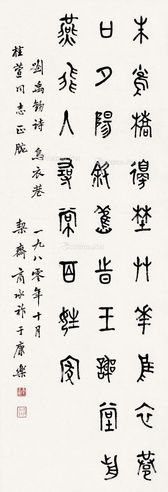 朱雀橋邊埜艸華烏衣巷
口夕陽斜舊旹王謝堂前
燕飛入尋常百姓家
劉禹錫詩 烏衣巷 一九八零年十月
桂萱同志正腕 契齋商承祚于康樂